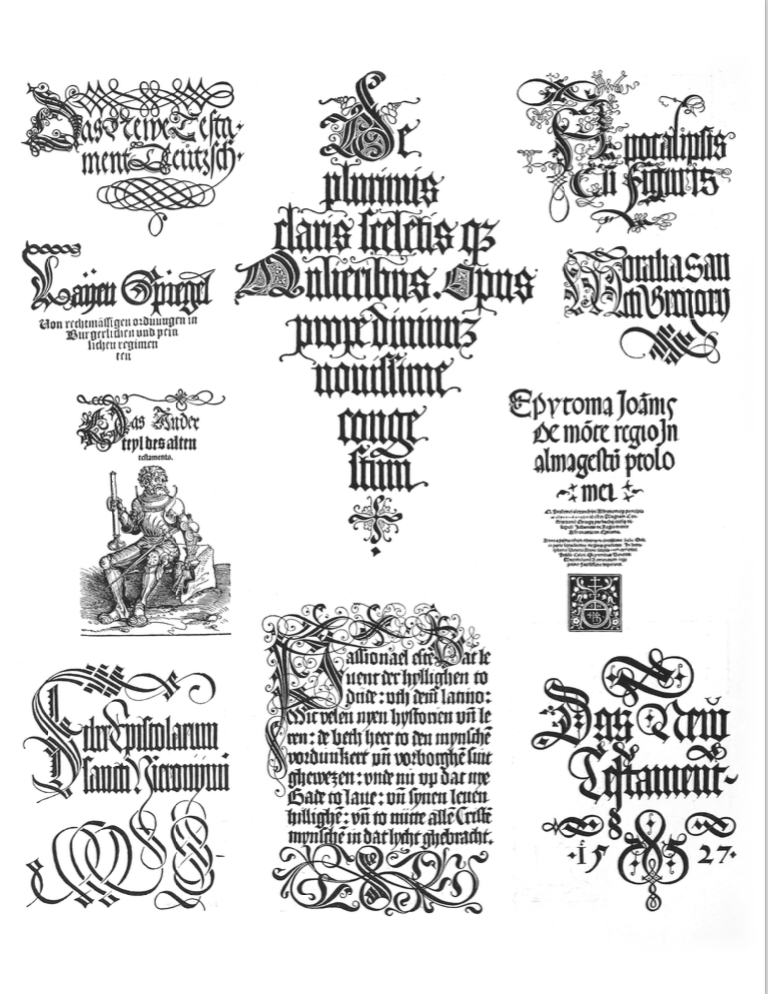 Das Newe Testa-
ment Deutzsch.
De
plurimis
claris sceletis qz
Mulieribus. Opus
prope diuinuz
nouissime
conge
stum
Apocalipsis
Cū Figuris
Layen Spiegel
Von rechtmässigen ordnungen in
Burgerlichen und pein
lichen regimen
ten
Moralia San
cti Gregory
Das Ander
teyl des alten
testaments.
Epytoma Joānis
De mōte regio In
almagestū ptolo
mei
Liber Epistolarum
sancti Hieronymi
Passionael efte Dat le
uent der hyllighen to
dude: vth dem latino:
Mit velen nyen hystorien vn̄ le
ren: de beth heer to den mynschē
vordunkert vn̄ vorborghē sint
ghewezen: vnde nu vp dat nye
Gade to laue: vn̄ synen leuen
hillighē: vn̄ to nutte allē Cristē
mynschē in dat lycht ghebracht.
Das New
Testament-
·15 27·